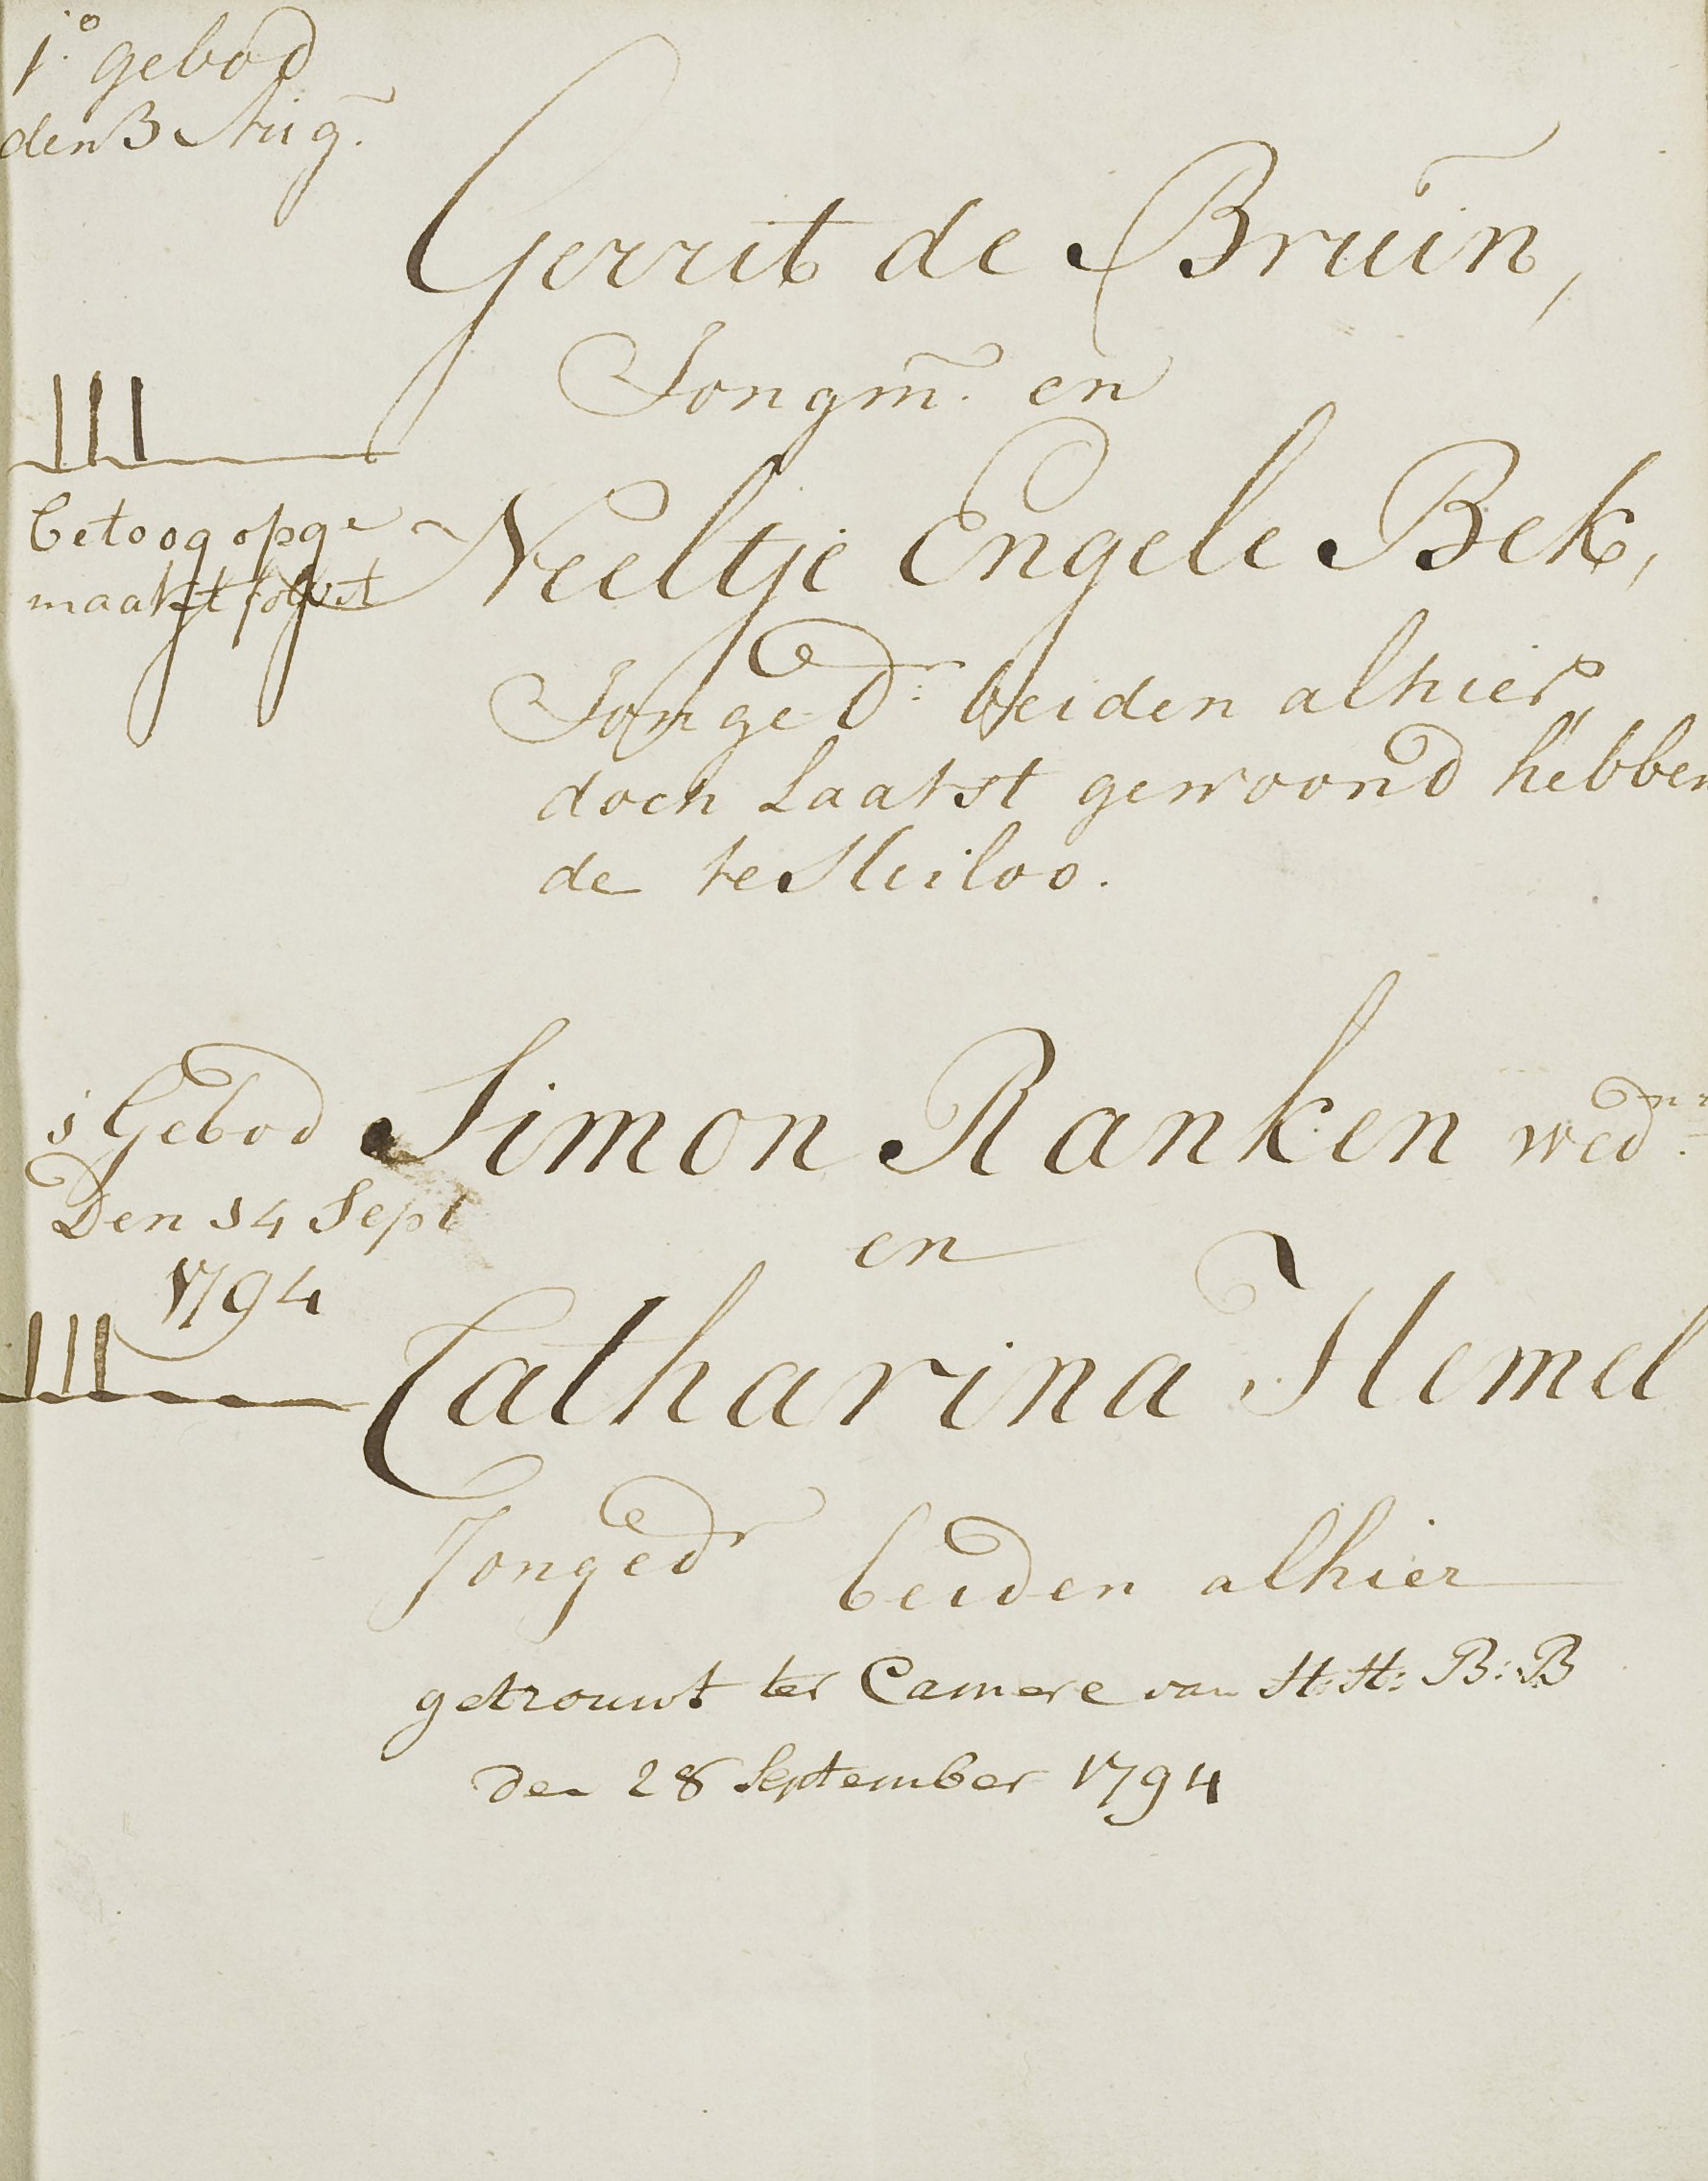 1.o gebod
den 3 Aug.
Gerrit de Bruin,
Jongm. en
betoog opge
maakt
Neeltje Engele Bek,
Jonge Dr. beiden alhier,
doch Laatst gewoond hebben
de te Heiloo.
1 Gebod
Den 14 Sept
1794
Simon Ranken wedn:
en
Catharina Hemel
Jongedr beiden alhier
getrouwt ter Camere van H:H: B:B
den 28 September 1794